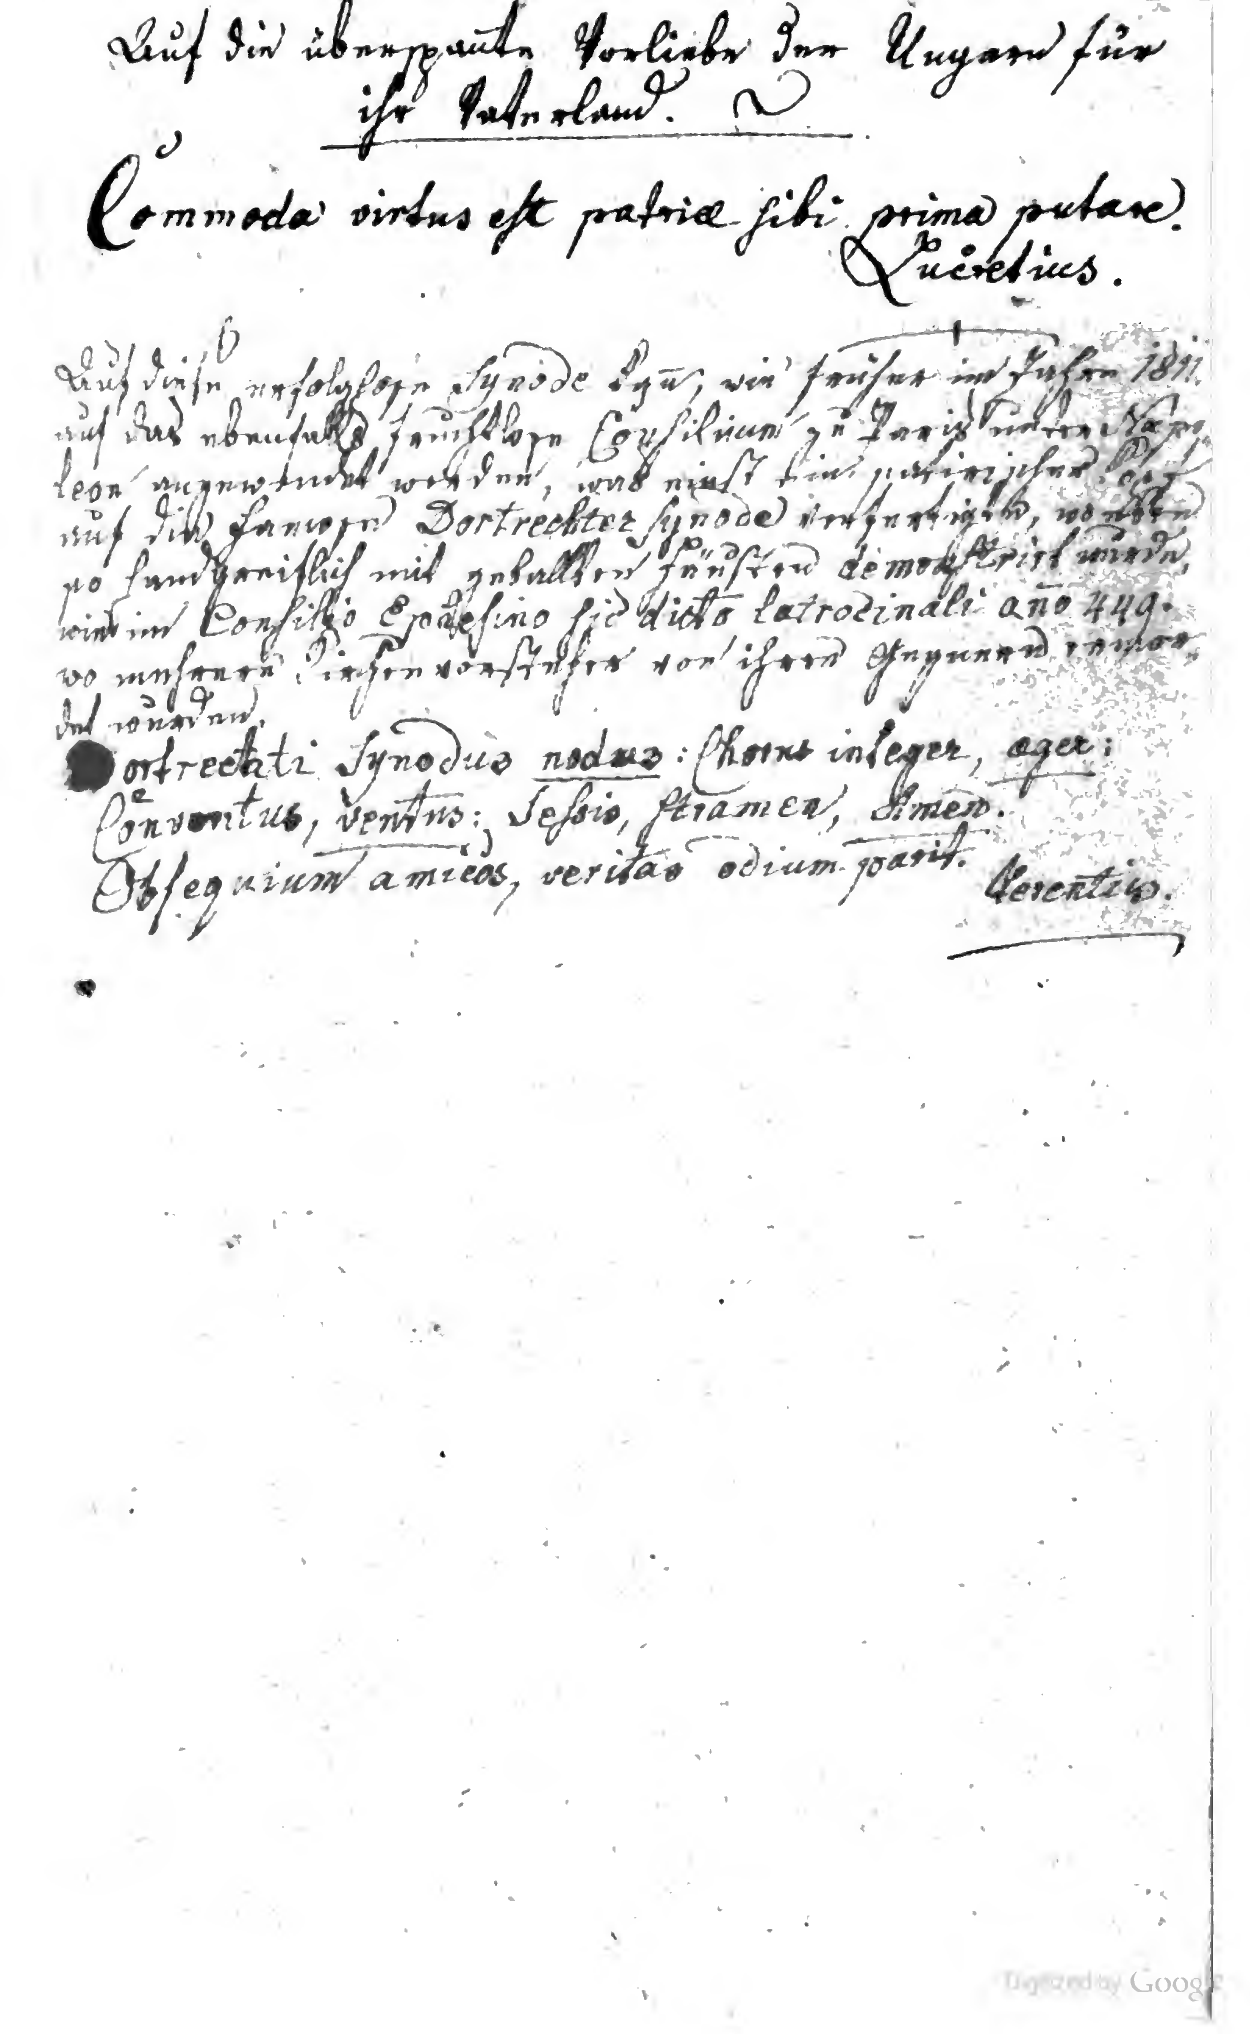 Auf die überspañte Vorliebe der Ungarn für
ihr Vaterland.
Commoda virtus est patriæ sibi prima putare.
Lucretius.
Auf diese erfolglose Synode kañ, wie früher im Jahre 1811.
auf das ebenfalls fruchtlose Consilium zu Paris unter Napo
leon angewendet werden, was einst ein satirischer Kopf
auf die famose Dortrechter Synode verfertigte, wo eben
so handgreiflich mit geballten Fäusten demonstrirt wurde,
wie im Consilio Ephesino sic dicto latrocinali año 449.
wo mehrere Kirchenvorsteher von ihren Gegnern ermor
det wurden.
Dortrechti Synodus nodus: Chorus integer, æger:
Conventus, ventus: Sessio, stramen, Amen.
Obsequium amicos, veritas odium parit.
Terentius.
Digitized by Google